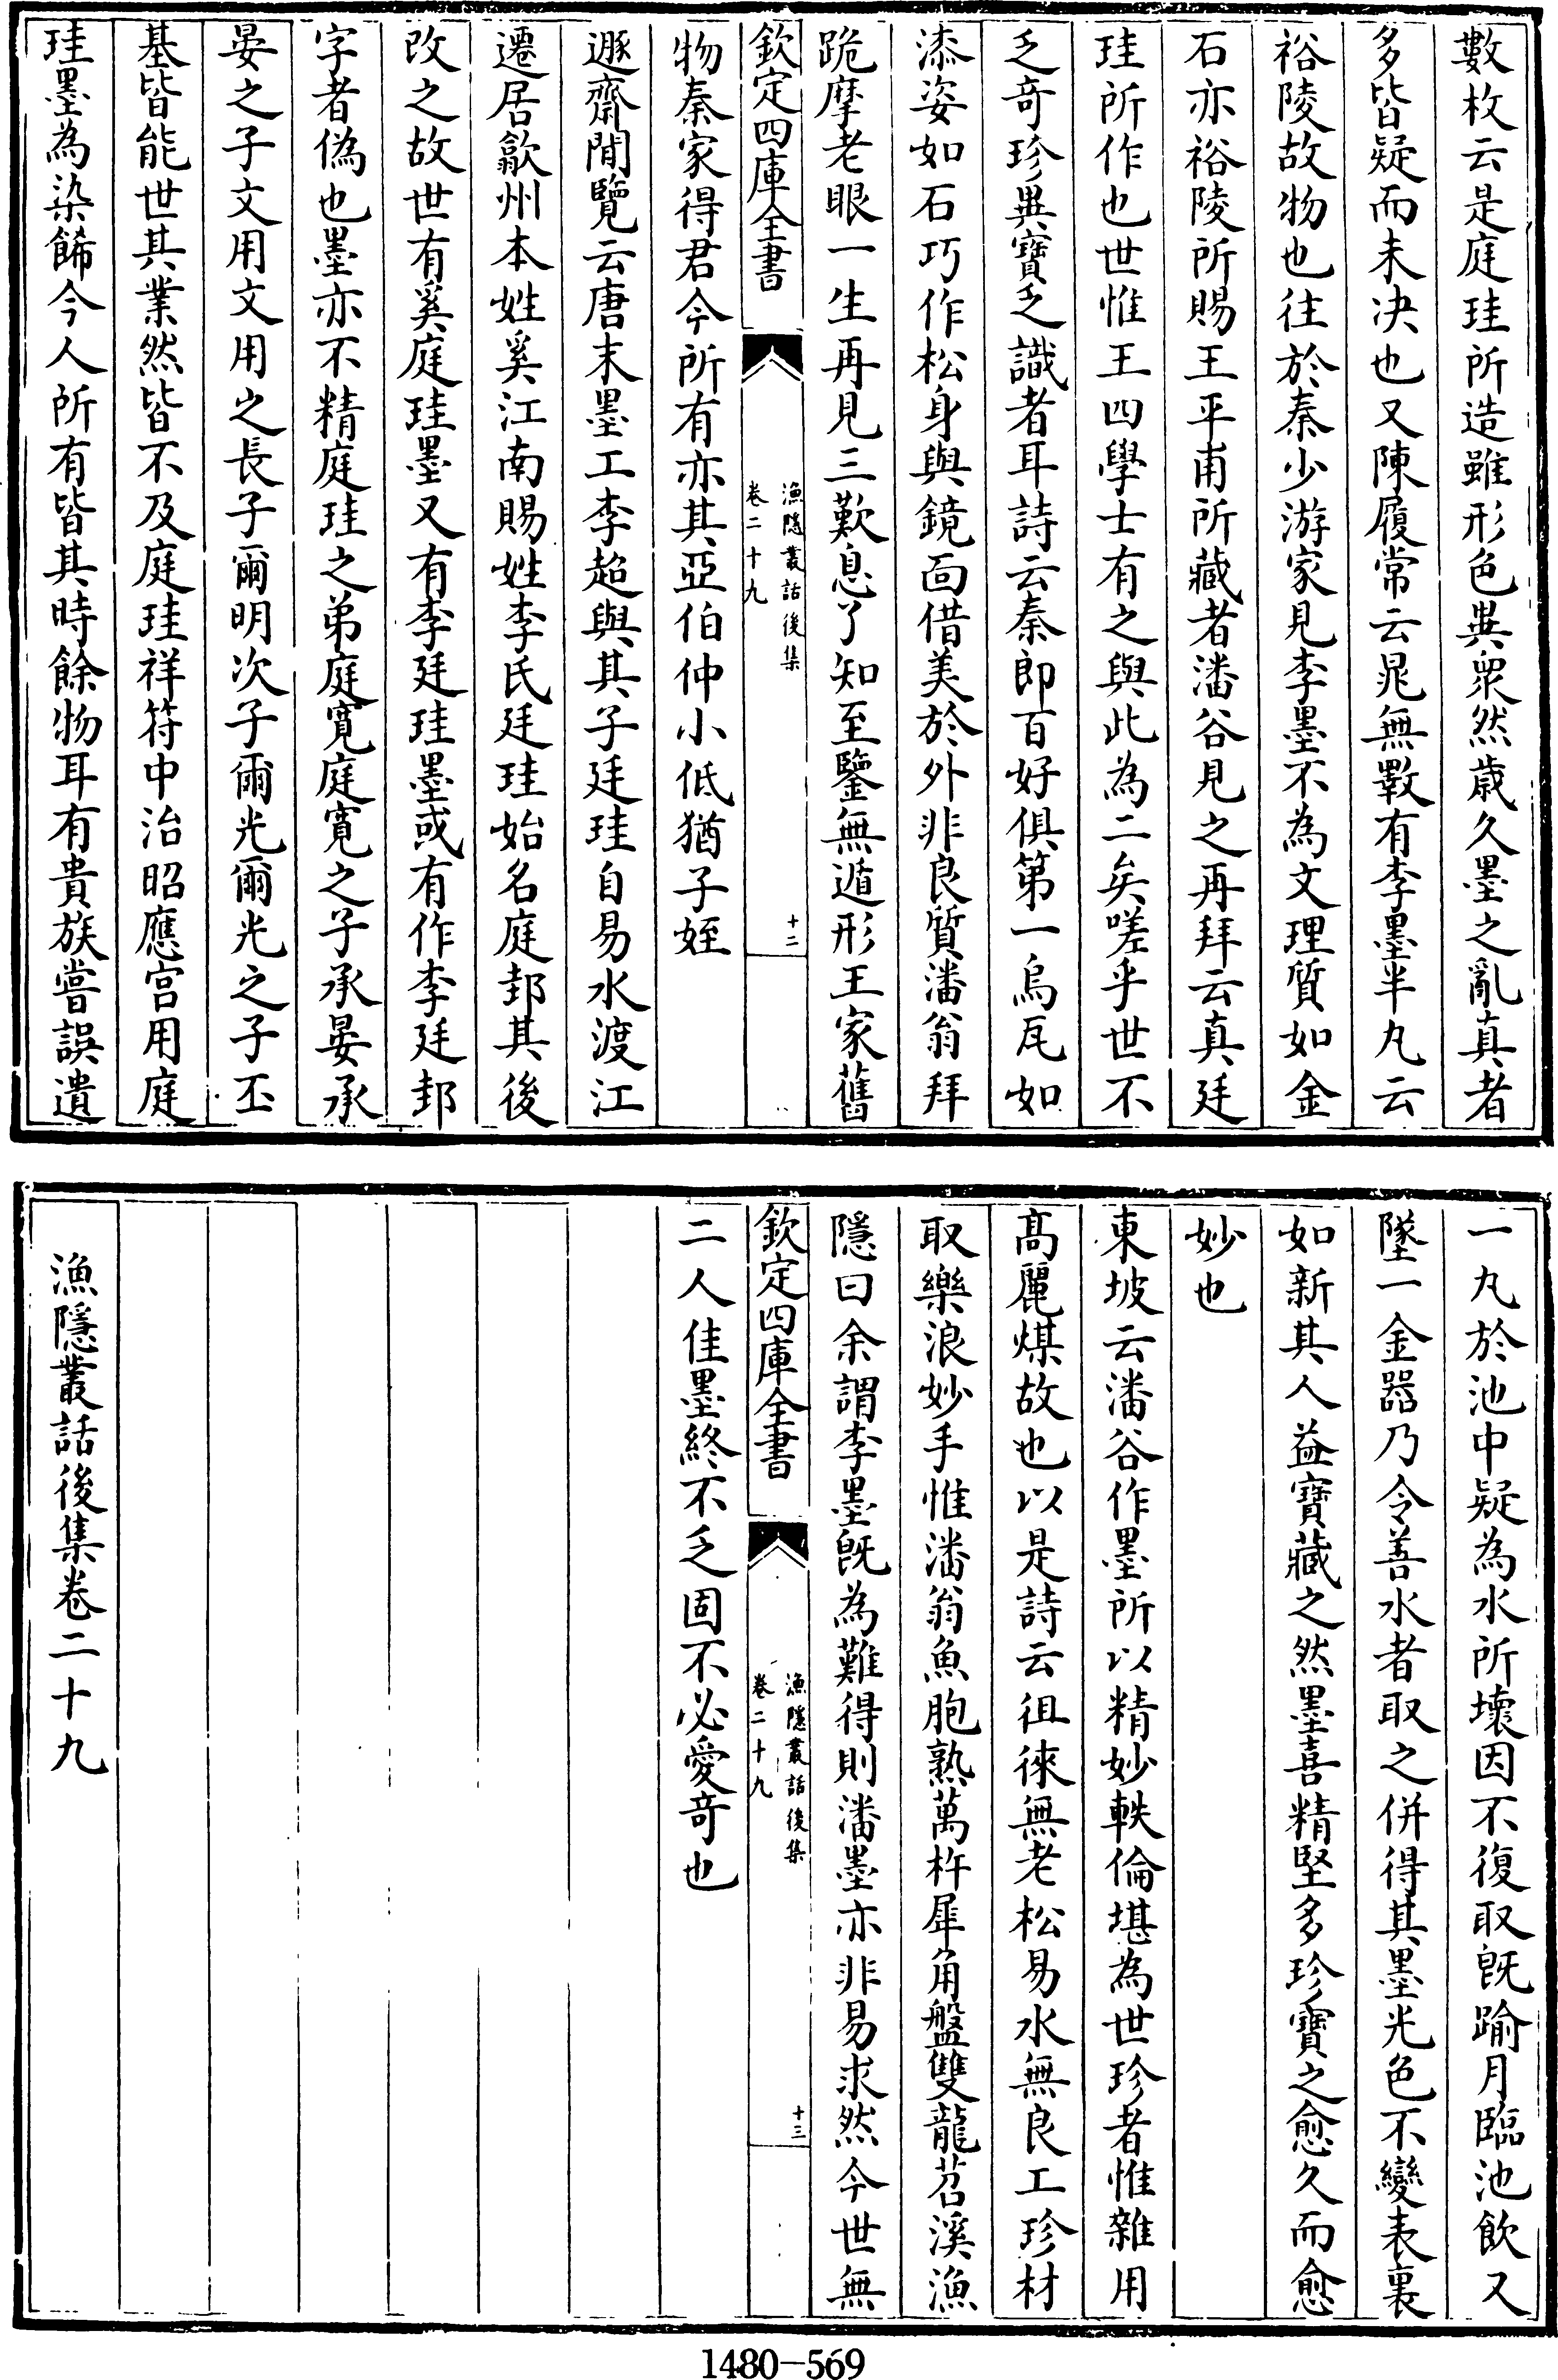 數枚云是庭珪所造雖形色異衆然歲久墨之亂真者
多皆疑而未决也又陳履常云晁無斁有李墨半丸云
裕陵故物也往於秦少游家見李墨不為文理質如金
石亦裕陵所賜王平甫所藏者潘谷見之再拜云真廷
珪所作也世惟王四學士有之與此為二矣嗟乎世不
乏奇珍異寶乏識者耳詩云秦郎百好俱第一烏瓦如
漆姿如石巧作松身與鏡面借美於外非良質潘翁拜
跪摩老眼一生再見三歎息了知至鑒無遁形王家舊
欽定四庫全書
漁隱叢話後集
卷二十九
十二
物秦家得君今所有亦其亞伯仲小低猶子姪
遯齋閒覽云唐末墨工李超與其子廷珪自易水渡江
遷居歙州本姓奚江南賜姓李氏廷珪始名庭邽其後
改之故世有奚庭珪墨又有李廷珪墨或有作李廷邽
字者偽也墨亦不精庭珪之弟庭寬庭寬之子承晏承
晏之子文用文用之長子爾明次子爾光爾光之子丕
基皆能世其業然皆不及庭珪祥符中治昭應宫用庭
珪墨為染餙今人所有皆其時餘物耳有貴族嘗誤遺
一丸於池中疑為水所壞因不復取旣踰月臨池飲又
墜一金器乃令善水者取之併得其墨光色不變表裏
如新其人益寶藏之然墨喜精堅多珍寶之愈久而愈
妙也
東坡云潘谷作墨所以精妙軼倫堪為世珍者惟雜用
髙麗煤故也以是詩云徂徠無老松易水無良工珍材
取樂浪妙手惟潘翁魚胞熟萬杵犀角盤雙龍苕溪漁
隱曰余謂李墨旣為難得則潘墨亦非易求然今世無
欽定四庫全書
漁隱叢話後集
卷二十九
十三
二人佳墨終不乏固不必愛奇也
漁隱叢話後集卷二十九
1480-569